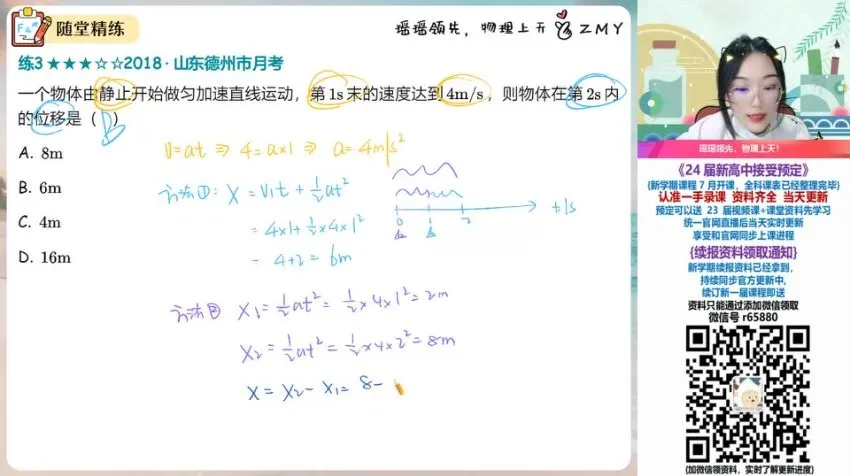 随堂精练
瑶瑶领先，物理上天 ZMY
练3 ★★★☆☆ 2018·山东德州市月考
一个物体由静止开始做匀加速直线运动，第 1s 末的速度达到 4m/s，则物体在第 2s 内
的位移是（B）
A. 8m
B. 6m
C. 4m
D. 16m
v=at ⇒ 4=a×1 ⇒ a=4m/s²
方法①: x=v₁t+½at²
=4×1+½×4×1²
=4+2=6m
0 1 2 t/s
方法② x₁=½at²=½×4×1²=2m
x₂=½at²=½×4×2²=8m
x=x₂-x₁=8-
瑶瑶领先，物理上天！
《24 届新高中接受预定》
(新学期课程 7 月开课，全科课表已经整理完毕)
认准一手录课 资料齐全 当天更新
预定可以送 23 届视频课+课堂资料先学习
统一官网直播后当天实时更新
享受和官网同步上课进程
{续报资料领取通知}
新学期续报资料已经拿到，
持续同步官方更新中，
续订新一届课程即送
资料只能通过添加微信领取
微信号 r65880
(加微信领资料，实时了解更新进度)